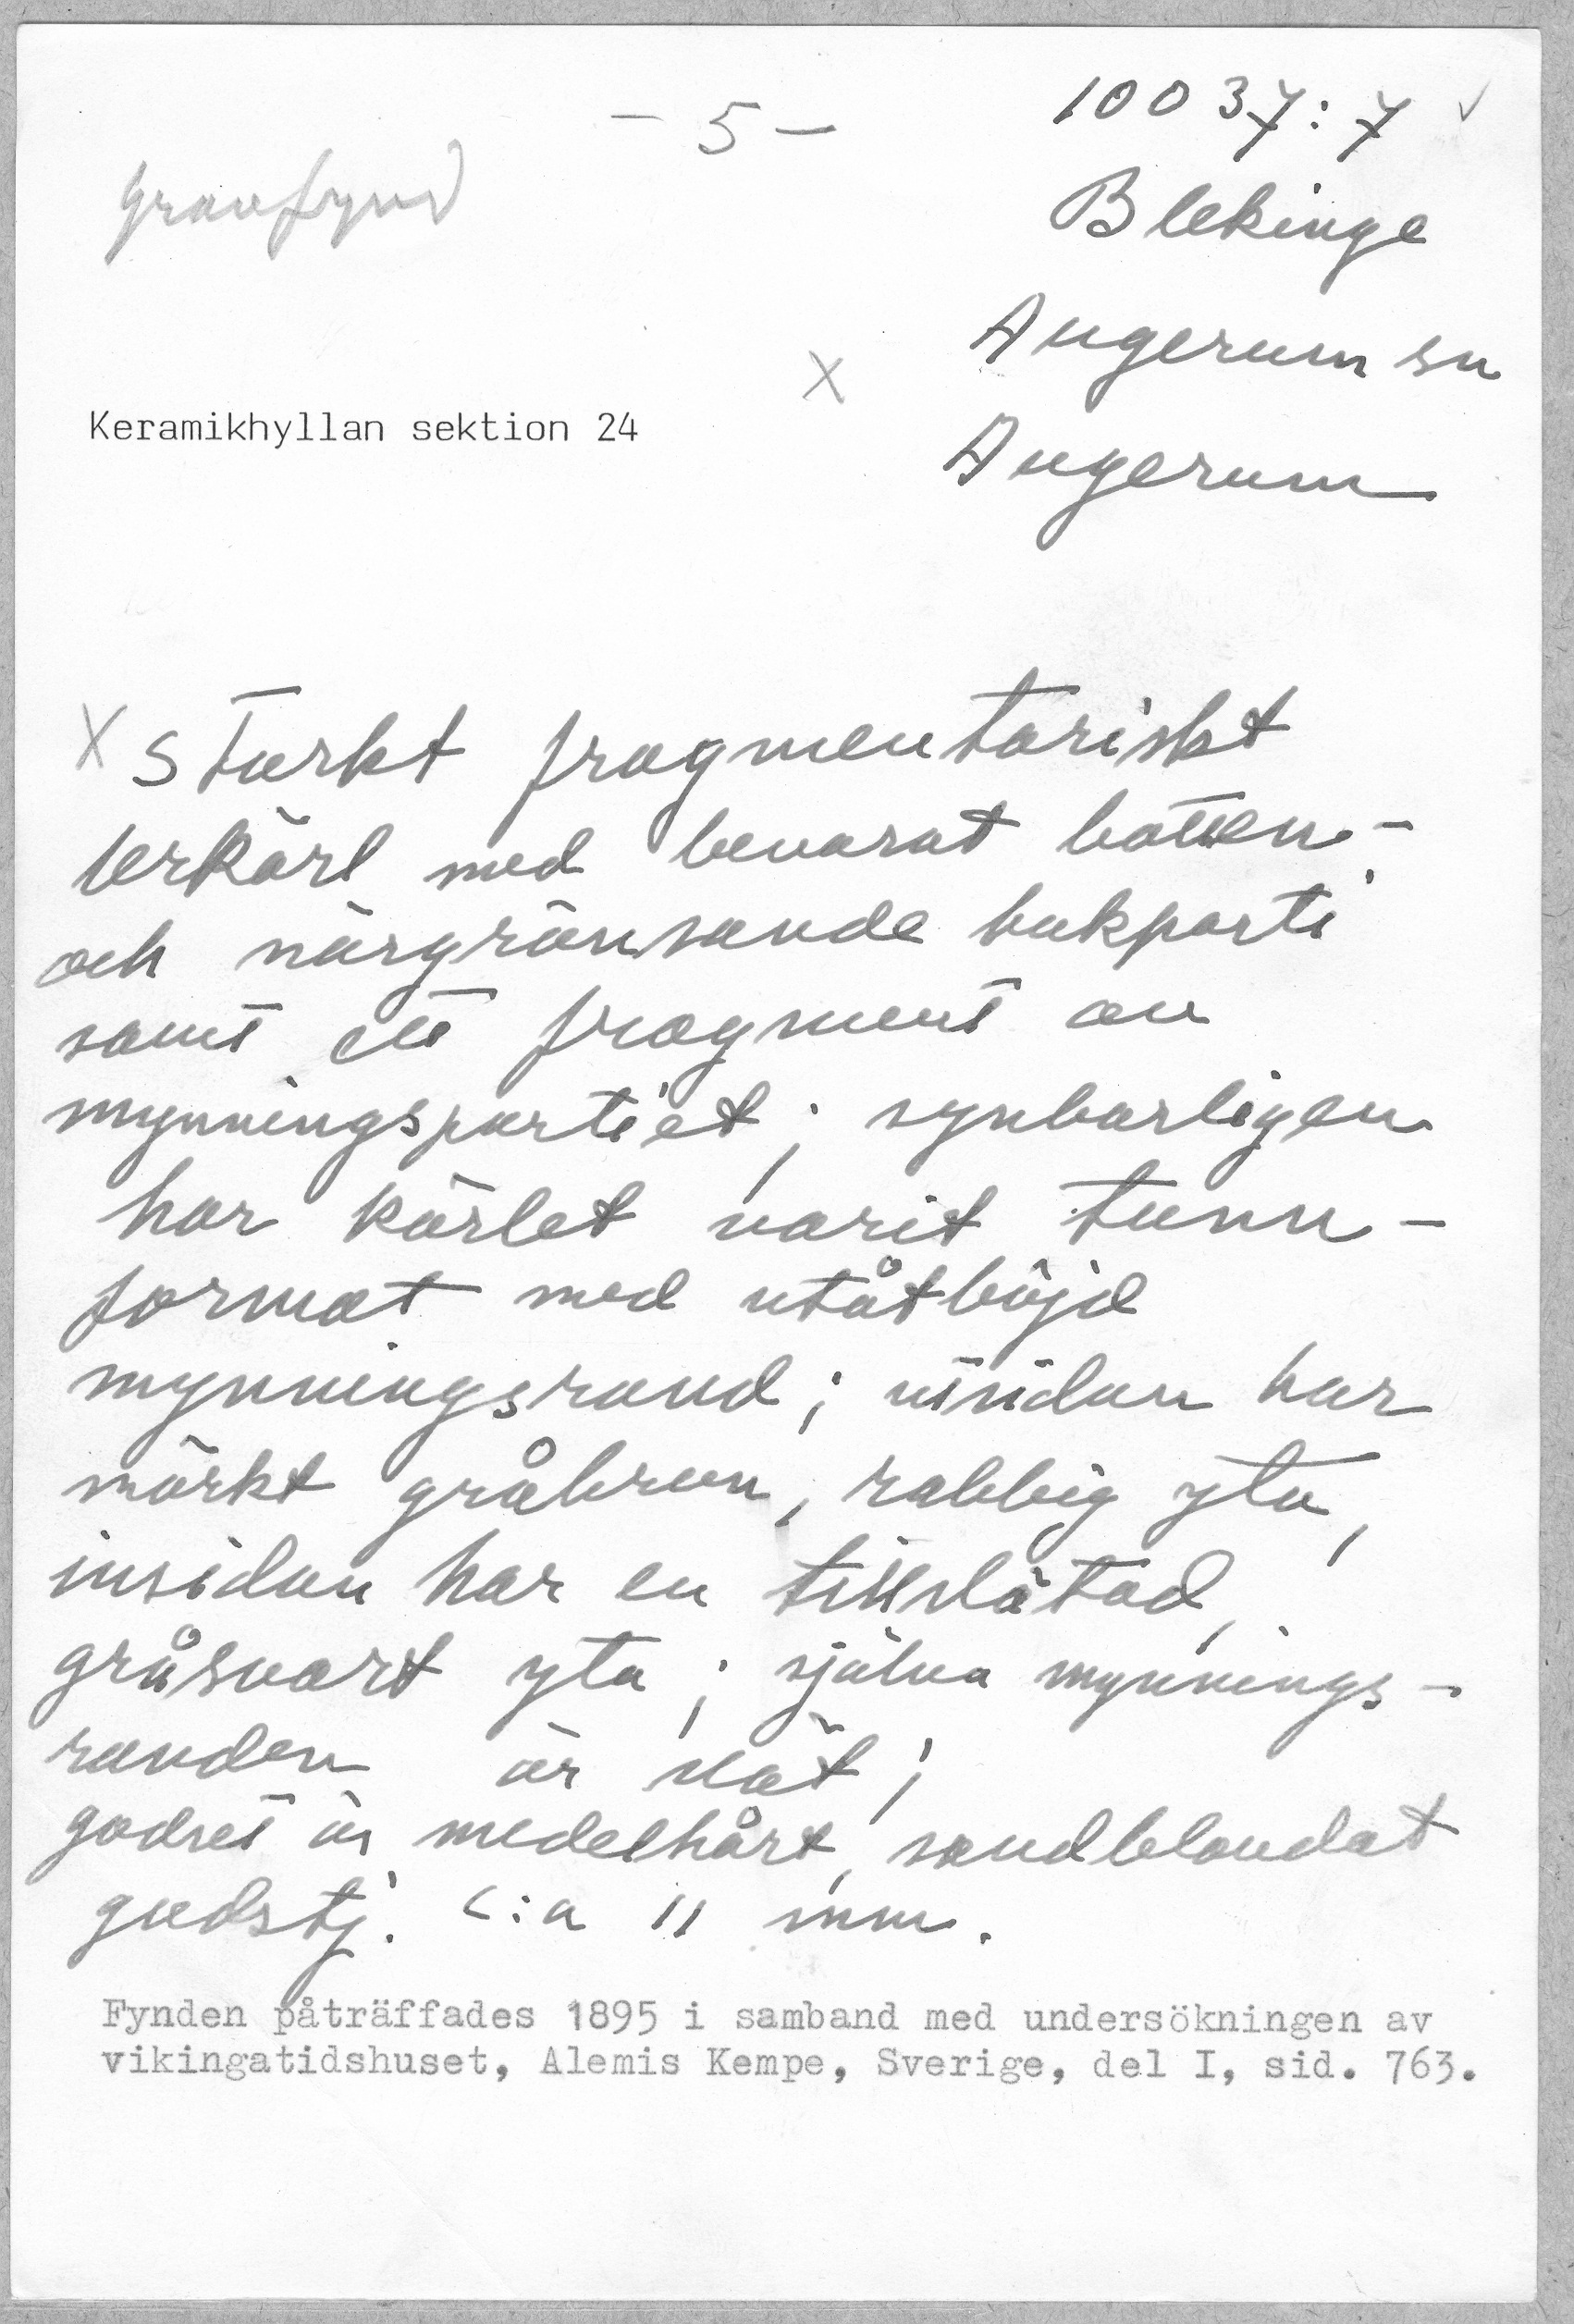 - 5 -
10037:7 ✓
gravfynd
Blekinge
Augerum sn
X
Keramikhyllan sektion 24
Augerum
X Starkt fragmentariskt
lerkärl med bevarat botten-
och närgränsande bukparti
samt ett fragment av
mynningspartiet; synbarligen
har kärlet varit tunn-
format med utåtböjd
mynningsrand; utsidan har
mörkt gråbrun, rabbig yta,
insidan har en tillslätad,
gråsvart yta; själva mynnings-
randen är slät;
godset är medelhårt, sandblandat
godstj. c:a 11 mm.
Fynden påträffades 1895 i samband med undersökningen av
vikingatidshuset, Alemis Kempe, Sverige, del I, sid. 763.